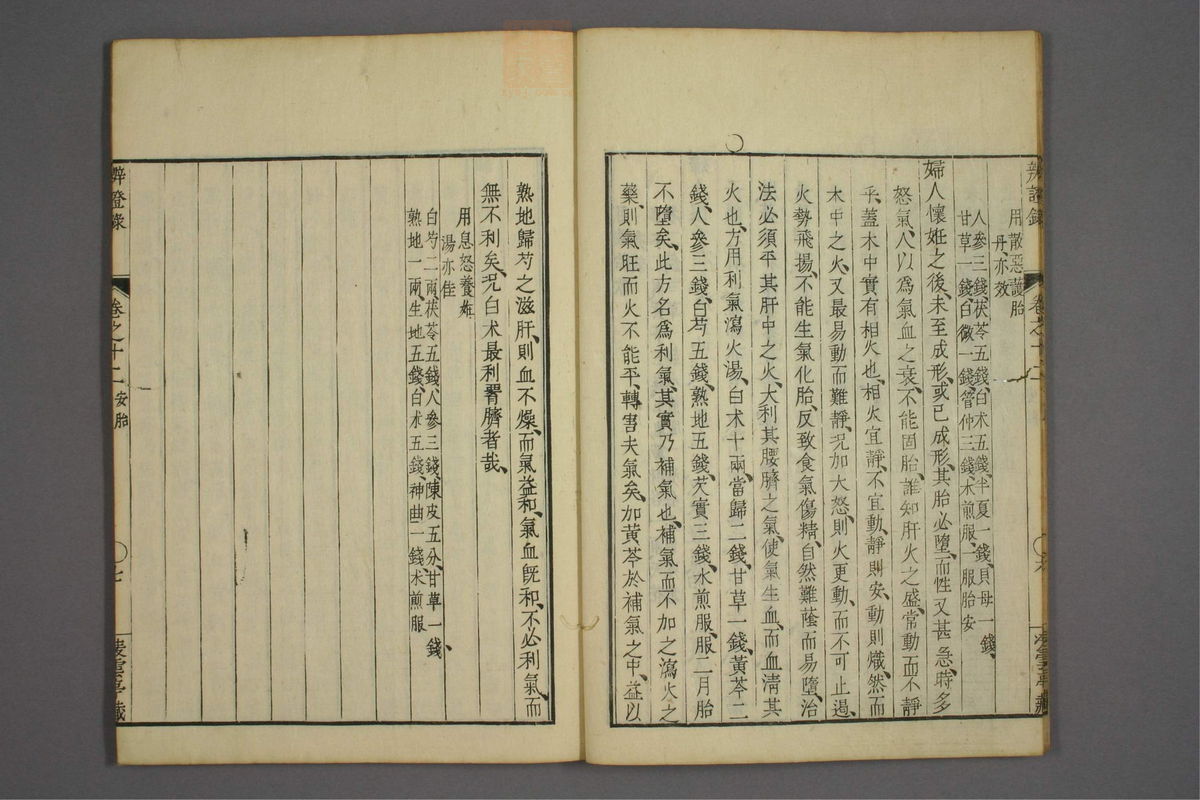 辨證錄
卷之十二
用散惡護胎
丹亦效
人參三錢茯苓五錢白朮五錢半夏一錢貝母一錢
甘草一錢白薇一錢管仲三錢水煎服一服胎安
婦人懷妊之後未至成形或已成形其胎必墮而性又甚急時多
怒氣人以為氣血之衰不能固胎誰知肝火之盛常動而不靜
乎蓋木中實有相火也相火宜靜不宜動靜則安動則熾然而
木中之火又最易動而難靜況加大怒則火更動而不可止遏
火勢飛揚不能生氣化胎反致食氣傷精自然難蔭而易墮治
法必須平其肝中之火大利其腰臍之氣使氣生血而血清其
火也方用利氣瀉火湯白朮十兩當歸二錢甘草一錢黃芩二
錢人參三錢白芍五錢熟地五錢芡實三錢水煎服服二月胎
不墮矣此方名為利氣其實乃補氣也補氣而不加之瀉火之
藥則氣旺而火不能平轉害夫氣矣加黃芩於補氣之中益以
熟地歸芍之滋肝則血不燥而氣益和氣血既和不必利氣而
無不利矣況白朮最利腰臍者哉
用息怒養妊
湯亦佳
白芍二兩茯苓五錢人參三錢陳皮五分甘草一錢
熟地一兩生地五錢白朮五錢神曲一錢水煎服
辨證錄
卷之十二
安胎
七